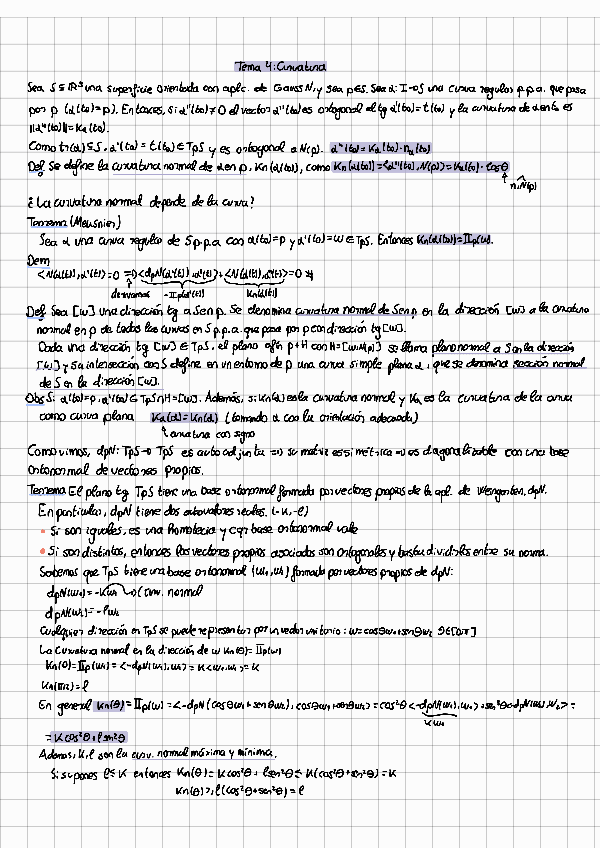 Tema 4: Curvatura
Sea S ⊆ ℝ³ una superficie orientada con aplc. de Gauss N, y sea p∈S. Sea α: I→S una curva regular p.p.a. que pasa
por p (α(t₀)=p). Entonces, si α''(t₀)≠0 el vector α''(t₀) es ortogonal al tg α'(t₀)=t(t₀) y la curvatura de α en t₀ es
||α''(t₀)||=Kα(t₀).
Como tr(α)⊆S, α'(t₀)=t(t₀)∈TpS y es ortogonal a N(p). α''(t₀)=Kα(t₀)·nα(t₀)
Def Se define la curvatura normal de α en p, Kn(α(t₀)), como Kn(α(t₀))=<α''(t₀),N(p)>=Kα(t₀)·cosθ
n,N(p)
¿La curvatura normal depende de la curva?
Teorema (Meusnier)
Sea α una curva regular de S p.p.a. con α(t₀)=p y α'(t₀)=w∈TpS. Entonces Kn(α(t₀))=IIp(w).
Dem
<N(α(t)),α'(t)>=0 ⇒ <dpN(α'(t)),α'(t)>+<N(α(t)),α''(t)>=0
derivamos -IIp(α'(t)) Kn(α(t))
Def Sea [w] una dirección tg a S en p. Se denomina curvatura normal de S en p en la dirección [w] a la curvatura
normal en p de todas las curvas en S p.p.a. que pasa por p con dirección tg [w].
Dada una dirección tg [w]∈TpS, el plano afín p+H con H=[w,N(p)] se llama plano normal a S en la dirección
[w] y su intersección con S define en un entorno de p una curva simple plana α, que se denomina sección normal
de S en la dirección [w].
Obs Si α(t₀)=p, α'(t₀)∈TpS∩H=[w]. Además, si Kn(α) es la curvatura normal y Kα es la curvatura de la curva
como curva plana Kα(α)=Kn(α) (tomando α con la orientación adecuada)
curvatura con signo
Como vimos, dpN: TpS→TpS es autoadjunta ⇒ su matriz es simétrica ⇒ es diagonalizable con una base
ortonormal de vectores propios.
Teorema El plano tg TpS tiene una base ortonormal formada por vectores propios de la apl. de Weingarten, dpN.
En particular, dpN tiene dos autovalores reales. (-K,-l)
• Si son iguales, es una homotecia y cqr base ortonormal vale
• Si son distintos, entonces los vectores propios asociados son ortogonales y basta dividirlos entre su norma.
Sabemos que TpS tiene una base ortonormal (w₁,w₂) formada por vectores propios de dpN:
dpN(w₁)=-Kw₁ → curv. normal
dpN(w₂)=-lw₂
Cualquier dirección en TpS se puede representar por un vector unitario: w=cosθw₁+senθw₂ θ∈[0,π]
La curvatura normal en la dirección de w Kn(θ)=IIp(w)
Kn(0)=IIp(w₁)=<-dpN(w₁),w₁>=K<w₁,w₁>=K
Kn(π/2)=l
En general Kn(θ)=IIp(w)=<-dpN(cosθw₁+senθw₂),cosθw₁+senθw₂>=cos²θ<-dpN(w₁),w₁>+sen²θ<-dpN(w₂),w₂>=
Kw₁
=Kcos²θ+lsen²θ
Además, K,l son la curv. normal máxima y mínima.
Si supones l≤K entonces Kn(θ)=Kcos²θ+lsen²θ≤K(cos²θ+sen²θ)=K
Kn(θ)≥l(cos²θ+sen²θ)=l